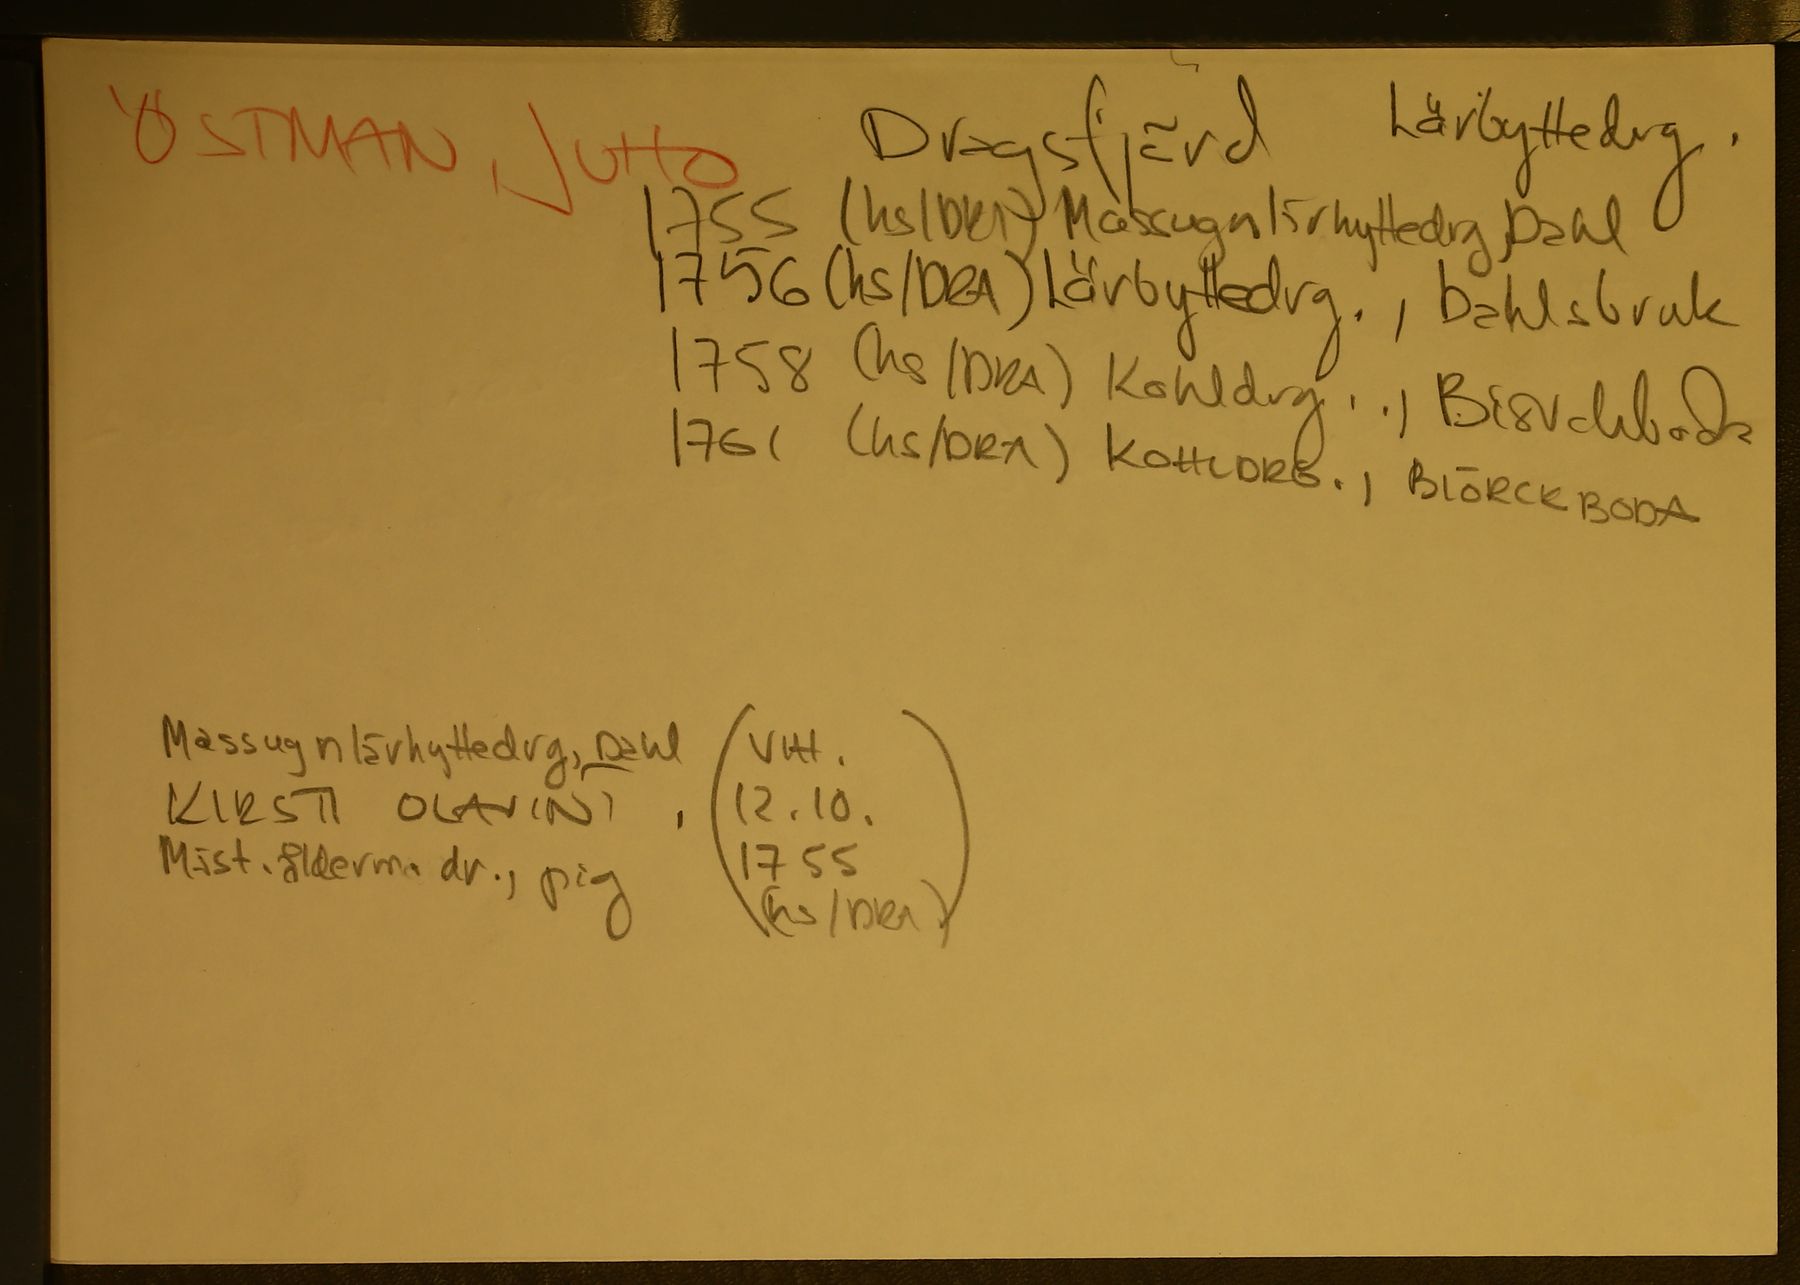 ÖSTMAN, JUHO Dragsfjärd Lärbyttedrg.
1755 (hs/DRA) Massugnlärhyttedrg, Dahl
1756 (hs/DRA) Lärbyttedrg., Dahlsbruk
1758 (hs/DRA) Kohldrg..,
1761 (hs/DRA) KOHLDRG., BIÖRCKBODA
Massugnlärhyttedrg, Dahl (VIH.
KIRSTI OLAVINT, 12.10.
Mist. ålderm. dr., pig 1755
(hs/DRA))